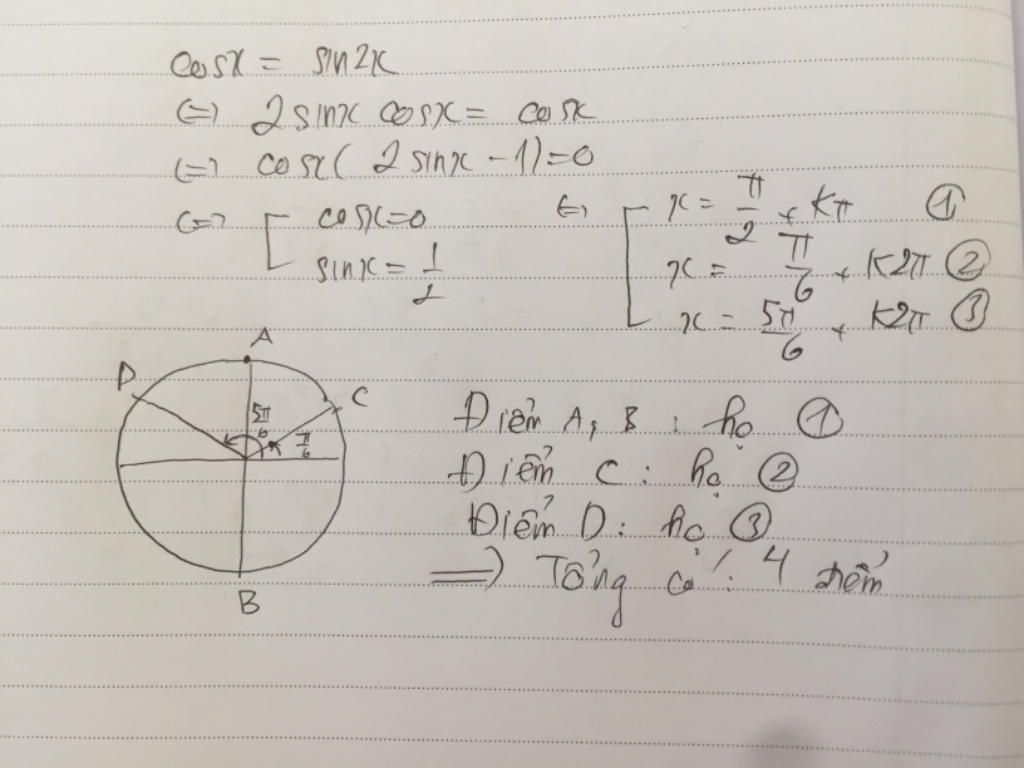 cosx = sin2x
⇔ 2 sinx cosx = cosx
⇔ cosx( 2 sinx - 1)=0
⇔ [ cosx=0 ⇔ [ x = π/2 + kπ ①
sinx = 1/2 x = π/6 + k2π ②
x = 5π/6 + k2π ③
A
D C
5π/6 π/6
B
Điểm A, B : họ ①
Điểm C : họ ②
Điểm D : họ ③
⇒ Tổng có : 4 điểm